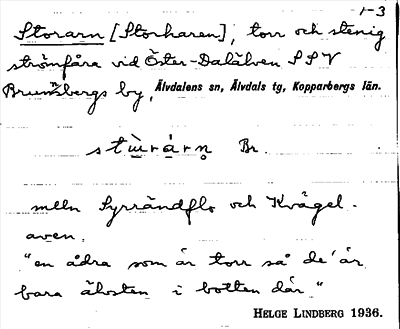 1-3
Storarn [Storharen], torr och stenig
strömfåra vid Öster-Dalälven SSV
Brunnsbergs by, Älvdalens sn, Älvdals tg, Kopparbergs län.
Br.
melln Syrrändflo och Kvägel-
aven.
"en ådra som är torr så de' är
bara älvsten i botten där"
HELGE LINDBERG 1936.